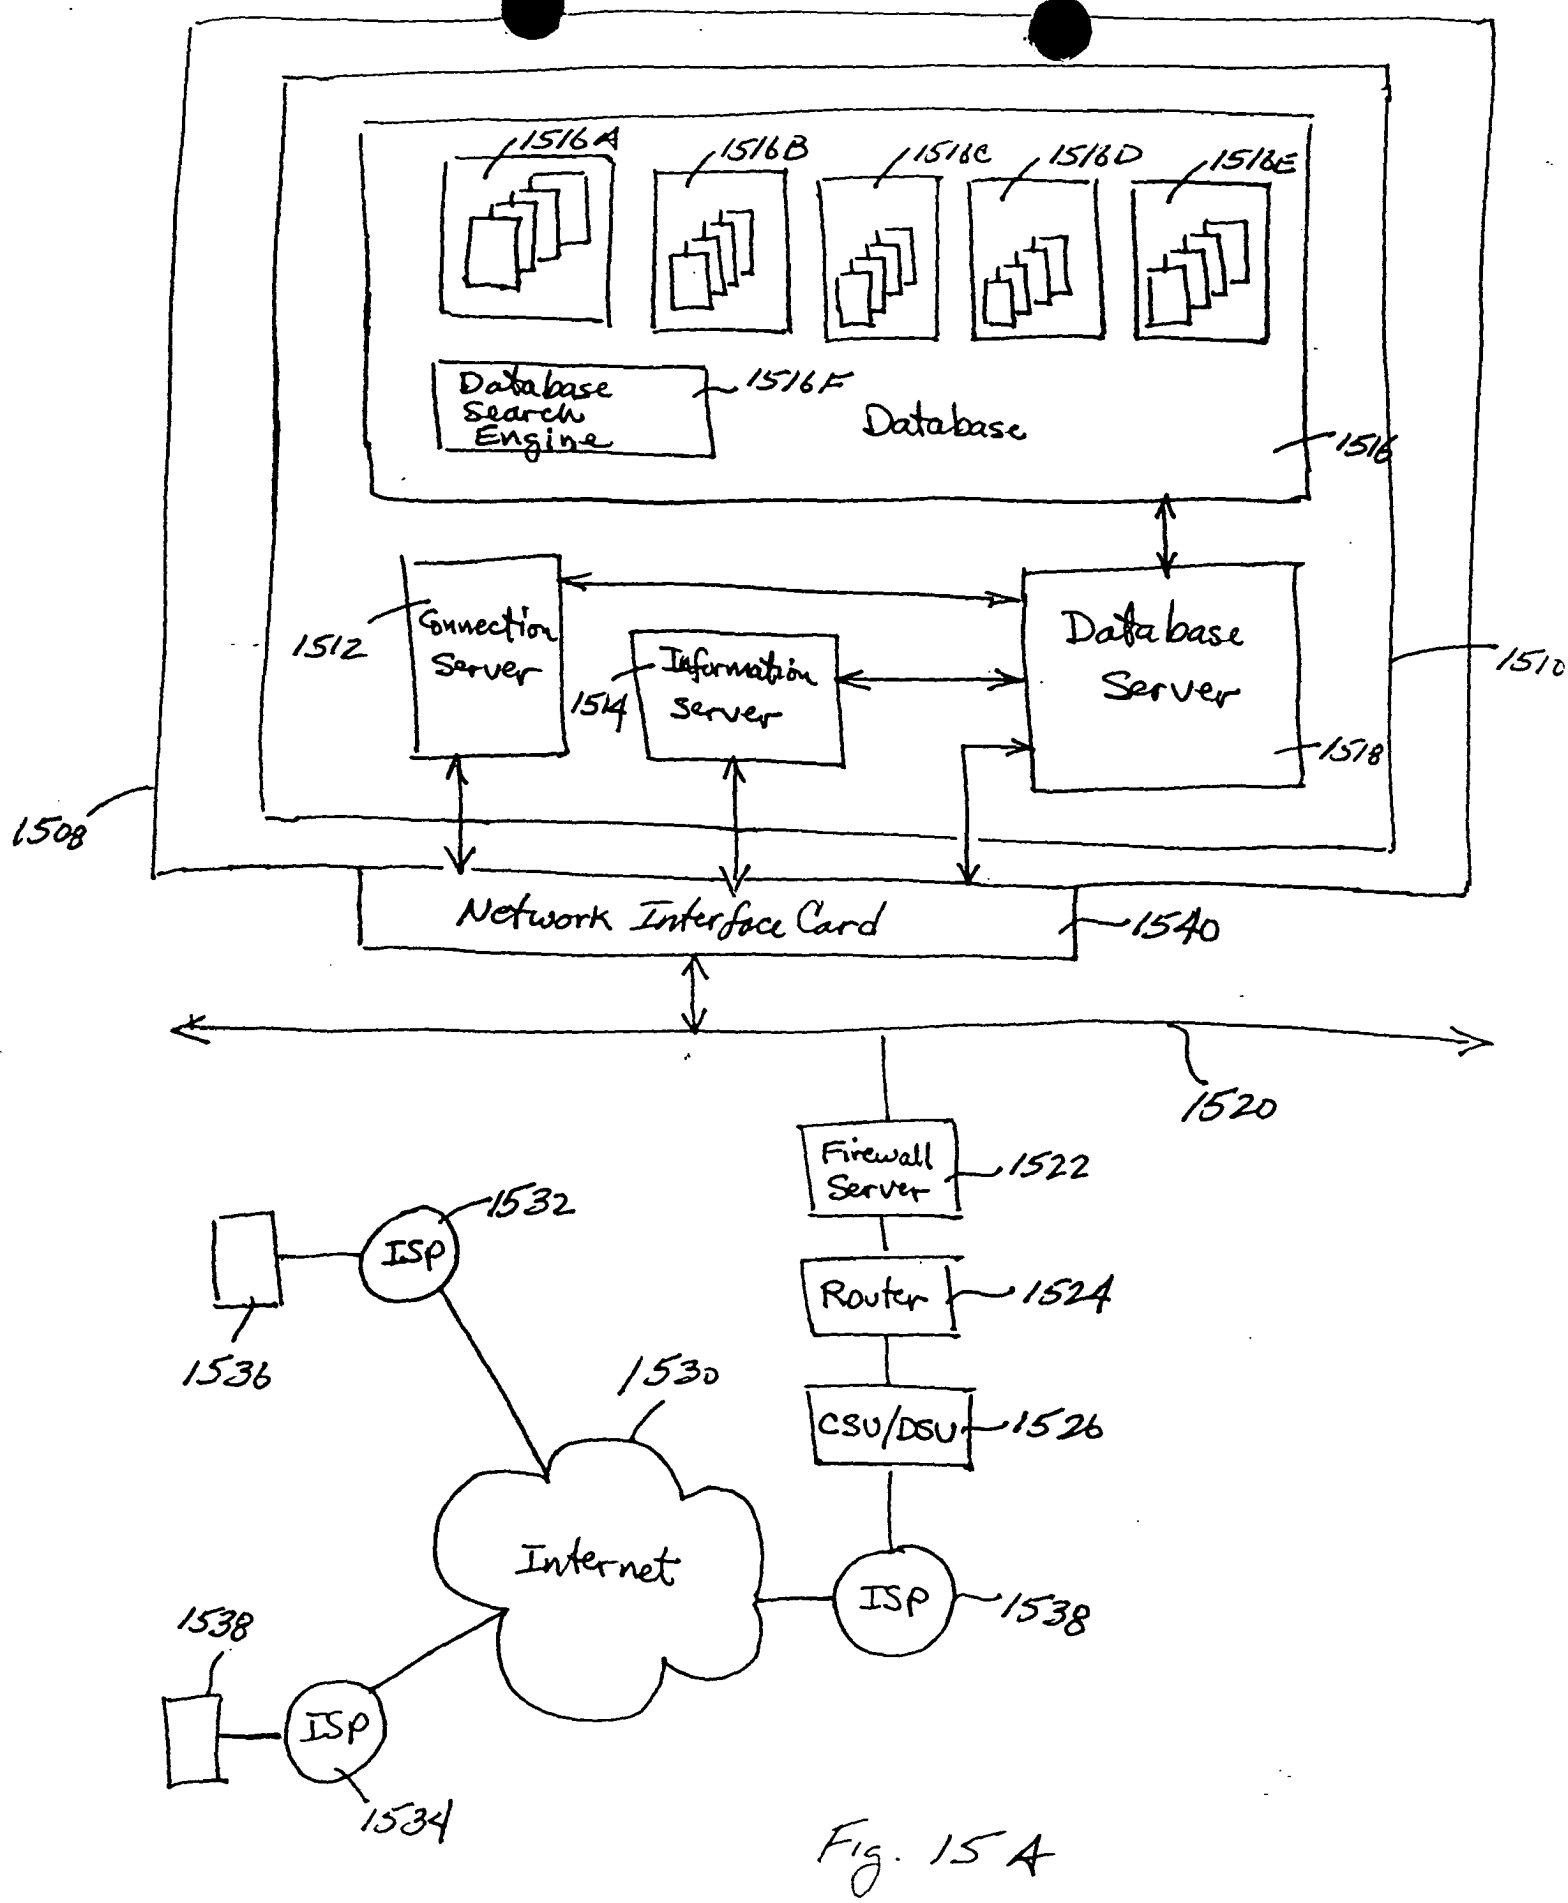 1516A
1516B
1516C
1516D
1516E
Database
Search
Engine
1516F
Database
1516
1512
Connection
Server
1514
Information
Server
Database
Server
1518
1510
1508
Network Interface Card
1540
1520
Firewall
Server
1522
1532
ISP
1536
Router
1524
1530
CSU/DSU
1526
Internet
ISP
1538
1538
ISP
1534
Fig. 15A